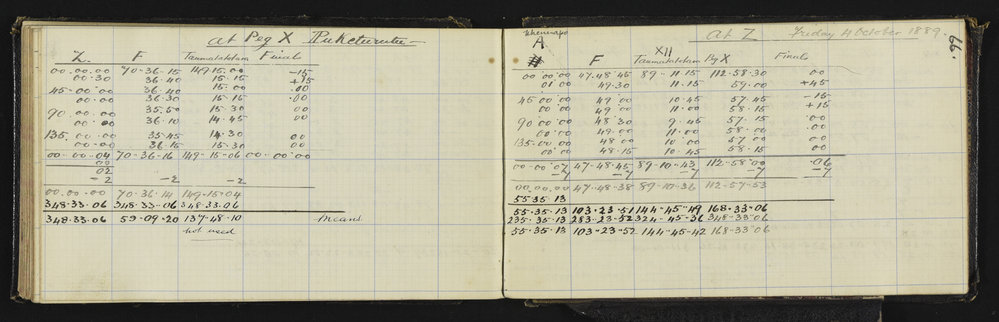 at Peg X Puketurutu
Z. F Taumatatotara Final
00.00.00 70-36-15 149.15.00 -15
00.30 36.40 15.15 +15
45-00-00 36.40 15.00 .00
00.00 36.30 15.15 .00
90.00.00 35.50 15.30 00
00.00 36.10 14.45 00
135.00.00 35.45 14.30 00
00.00 36.15 15.30 00
00-00.04 70-36-16 149-15-06 00-00-00
00
02
-2 -2 -2
00.00.00 70-36-14 149-15-04
348.33.06 348-33-06 348-33-06
348.33.06 59-09-20 137-48-10 Means
not used
at Z Friday 4 October 1889. 99.
A XII
F Taumatatotara Peg X Final
00.00.00 47-48-45 89-11-15 112-58-30 00
01.00 49-30 11.15 59.00 +45
45 00 00 49 00 10.45 57.45 -15
00.00 49 00 11.00 58.15 +15
90 00 00 48 30 9.45 57.15 00
00.00 49.00 11.00 58.00 .00
135-00.00 48 00 10 00 57 00 00
00.00 48-15 10.45 58.15 00
00-00-07 47-48-45 89-10-43 112-58-00 .06
-7 -7 -7 -7 -7
00.00.00 47-48-38 89-10-36 112-57-53
55 35.13
55-35-13 103-23-51 144-45-49 168-33-06
235-35-13 283-23-52 324-45-36 348-33-06
55.35.13 103-23-52 144-45-42 168-33-06